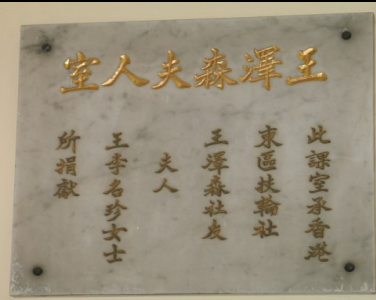 王澤森夫人室
此課室承香港
東區扶輪社
王澤森社友
夫人
王李名珍女士
所捐獻